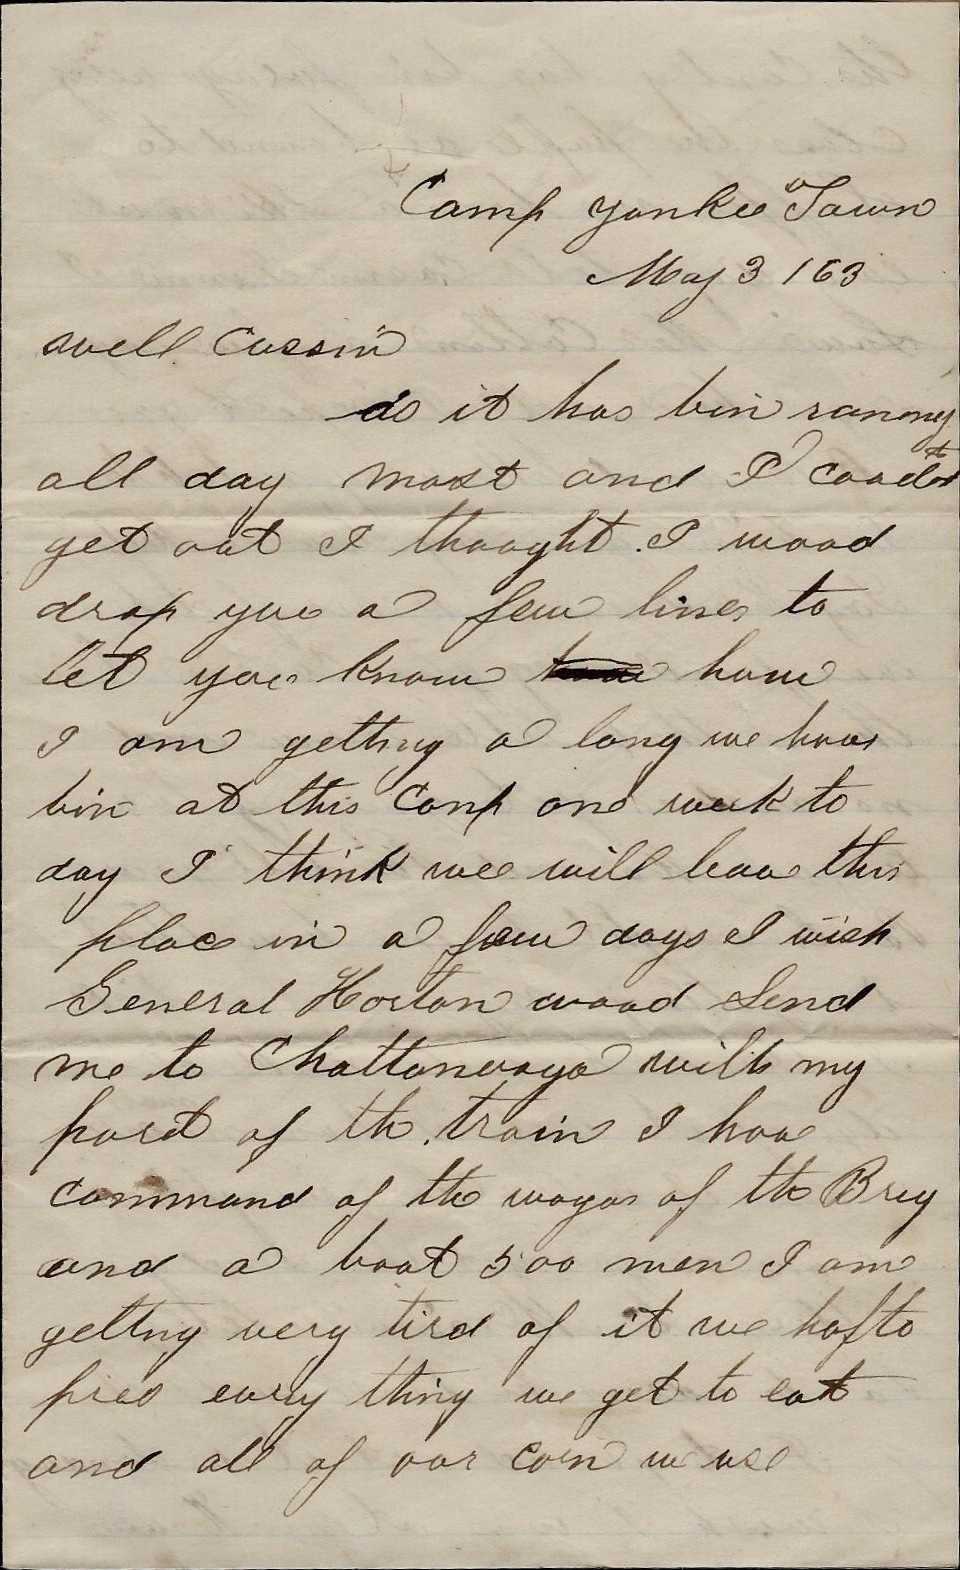 Camp yankee Town
May 3 / 63
well Cussin
as it has bin raning
all day most and I coodnt
get out I thought I wood
drop you a few lines to
let you know how
I am getting a long we have
bin at this Camp one week to
day I think wee will leave this
place in a few days I wish
General Horton wood Send
me to Chattanooga with my
part of the train I have
command of the wagons of the Brig
and a bout 500 men I am
getting very tird of it we hafto
pres every thing we get to eat
and all of our corn we use